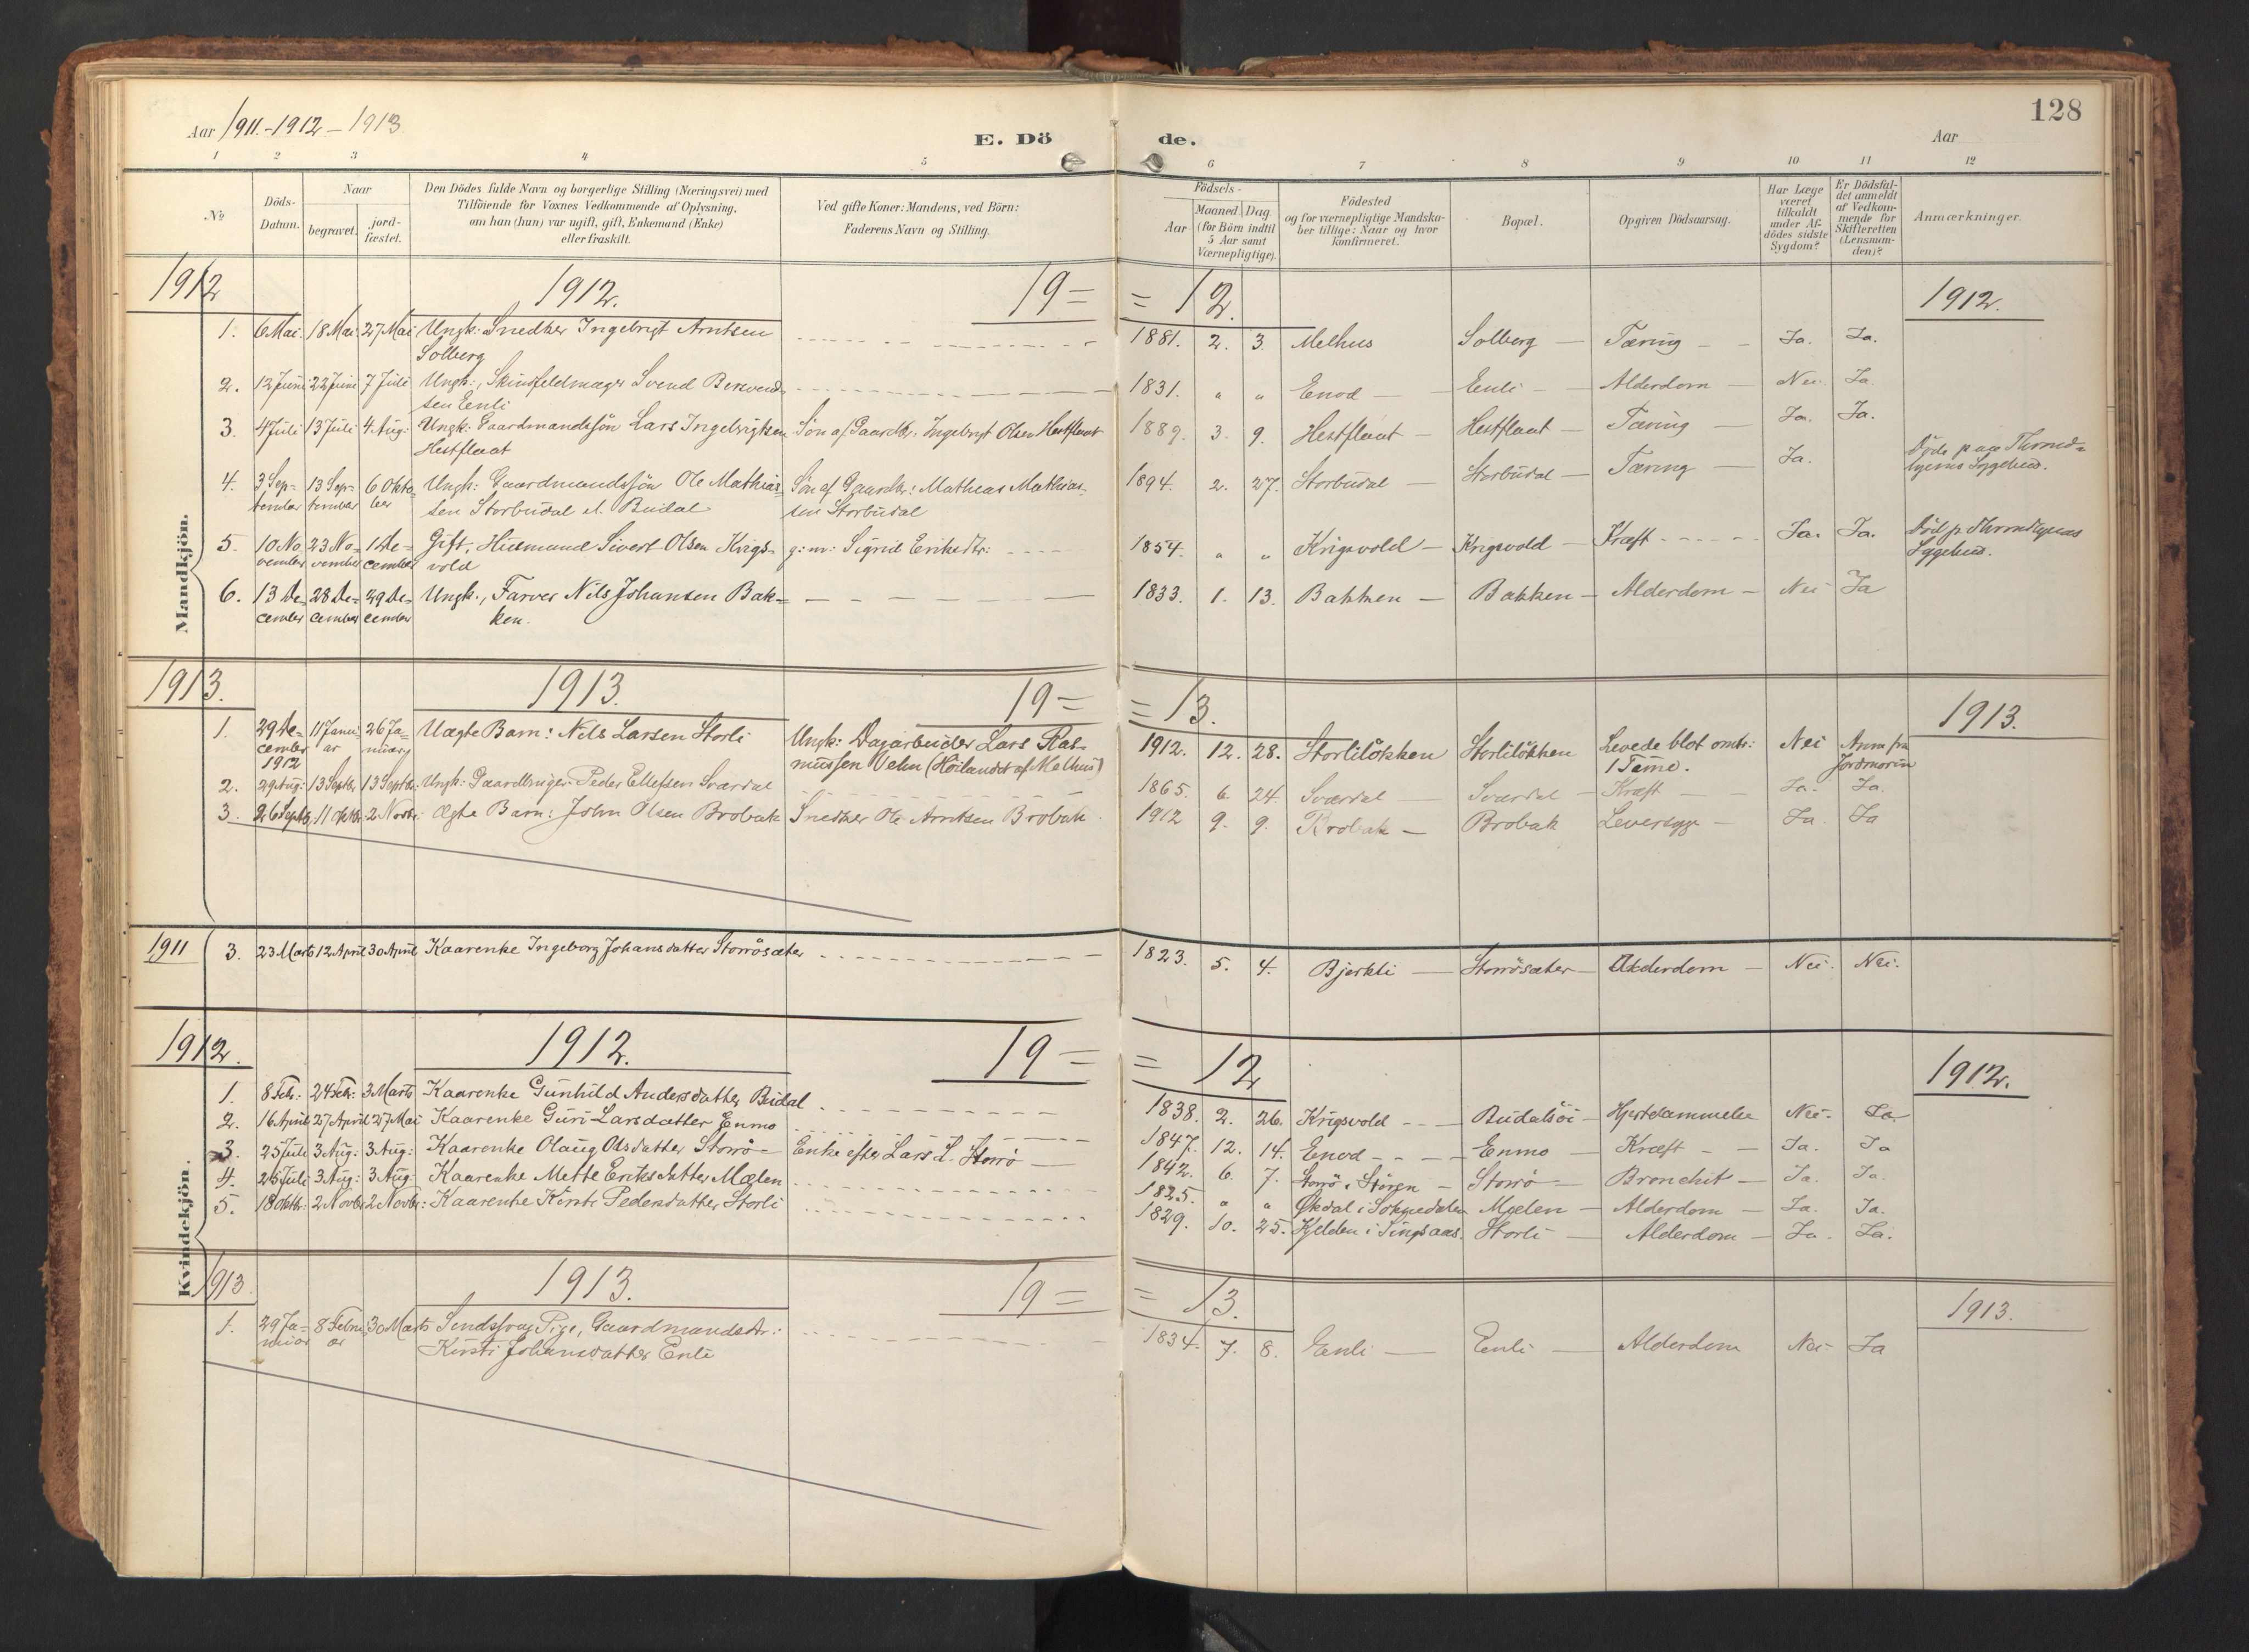 Aar 1911.-1912-1913.
E. Dö
de.
Aar
128
1 2 3 4 5 6 7 8 9 10 11 12
No
Döds-
Datum.
Naar
begravet.
jord-
fæstet.
Den Dödes fulde Navn og borgerlige Stilling (Næringsvei) med
Tilföiende for Voxnes Vedkommende af Oplysning,
om han (hun) var ugift, gift, Enkemand (Enke)
eller fraskilt.
Ved gifte Koner: Mandens, ved Börn:
Faderens Navn og Stilling.
Födsels-
Aar
Maaned. Dag.
(for Börn indtil
5 Aar samt
Værnepligtige).
Födested
og for værnepligtige Mandska-
ber tillige: Naar og hvor
konfirmeret.
Bopæl.
Opgiven Dödsaarsag.
Har Læge
været
tilkaldt
under Af-
dödes sidste
Sygdom?
Er Dödsfal-
det anmeldt
af Vedkom-
mende for
Skifteretten
(Lensman-
den)?
Anmærkninger.
Mandkjön.
1912 1912. 19= =12. 1912.
1. 6 Mai. 18 Mai. 27 Mai Ungk: Snedker Ingebrigt Arntsen 1881. 2. 3. Melhus Solberg Tæring Ja. Ja.
Solberg
2. 12 Juni 22 Juni 7 Juli Ungk:, Skindfeldmager Svend 1831. " " Enod Enli Alderdom Nei. Ja.
sen Enli
3. 4 Juli 13 Juli 4 Aug: Ungk: Gaardmandssön Lars Ingebrigtsen Sön af Gaardbr: Ingebrigt Olsen Hestflaat 1889. 3. 9. Hestflaat Hestflaat Tæring Ja. Ja.
Hestflaat
4. 3 Sep- 13 Sep- 6 Okto- Ungk: Gaardmandssön Ole Mathias- Sön af Gaardbr: Mathias Mathias- 1894. 2. 27. Storbudal Storbudal Tæring Ja. Döde paa Thrond-
tember tember ber sen Storbudal Budal sen Storbudal hjems Sygehus.
5. 10 No- 23 No- 1 De- Gift, Husmand Sivert Olsen Krigs- g: m: Sigrid Eriksdtr: 1854. " " Krigsvold Krigsvold Kræft Ja. Ja. Död p. Throndhjems
vember vember cember vold Sygehus.
6. 13 De- 28 De- 29 De- Ungk., Farver Nils Johansen Bak- 1833. 1. 13. Bakken Bakken Alderdom Nei Ja
cember cember cember ken.
1913. 1913. 19= =13. 1913.
1. 29 De- 11 Janu- 26 Ja- Uægte Barn: Nils Larsen Storli Ungk: Dagarbeider Lars Ras- 1912. 12. 28. Storlilökken Storlilökken Levede blot omtr: Nei Anm. fra
cember ar nuary mussen Vehn (Höilandet af Melhus) 1 Time. Jordmoren
1912
2. 29 Aug: 13 Septbr. 13 Septbr: Ungk: Gaardbruger Peder Ellefsen Svardal 1865. 6. 24. Svardal Svardal Kræft Ja. Ja.
3. 26 Septbr. 11 Oktbr. 2 Novbr: Ægte Barn: John Olsen Brobak Snedker Ole Arntsen Brobak. 1912 9. 9. Brobak Brobak Leversyge Ja. Ja
1911 3. 23 Marts 12 April 30 April Kaarenke Ingeborg Johansdatter Storrösæter 1823. 5. 4. Bjerkli Storrösæter Alderdom Nei. Nei.
Kvindekjön.
1912. 1912. 19= =12 1912.
1. 8 Feb: 24 Feb: 3 Marts Kaarenke Gunhild Andersdatter Budal 1838. 2. 26. Krigsvold Budalsöi Hjertelammelse Nei. Ja
2. 16 April 27 April 27 Mai Kaarenke Guri Larsdatter Enmo 1847. 12. 14. Enod Enmo Kræft Ja. Ja
3. 25 Juli 3 Aug: 3 Aug: Kaarenke Olaug Olsdatter Storrö Enke efter Lars L. Storrö 1842. 6. 7. Storrö i Stören Storrö Bronchit Ja. Ja.
4. 26 Juli 3 Aug: 3 Aug: Kaarenke Mette Eriksdatter Mælen 1825. " " Økdal i Soknedalen Mælen Alderdom Ja. Ja.
5. 18 Oktbr: 2 Novbr. 2 Novbr: Kaarenke Kirsti Pedersdatter Storli 1829. 10. 25. Kjelden i Singsaas. Storli Alderdom Ja. Ja.
1913. 1913. 19= =13. 1913.
1. 29 Ja- 8 Febru- 30 Marts Sindssvag Pige, Gaardmandsdtr: 1834. 7. 8. Enli Enli Alderdom Nei Ja
nuar ar Kirsti Johansdatter Enli